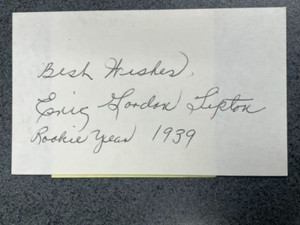 Best Wishes,
Eric Gordon Tipton
Rookie Year 1939